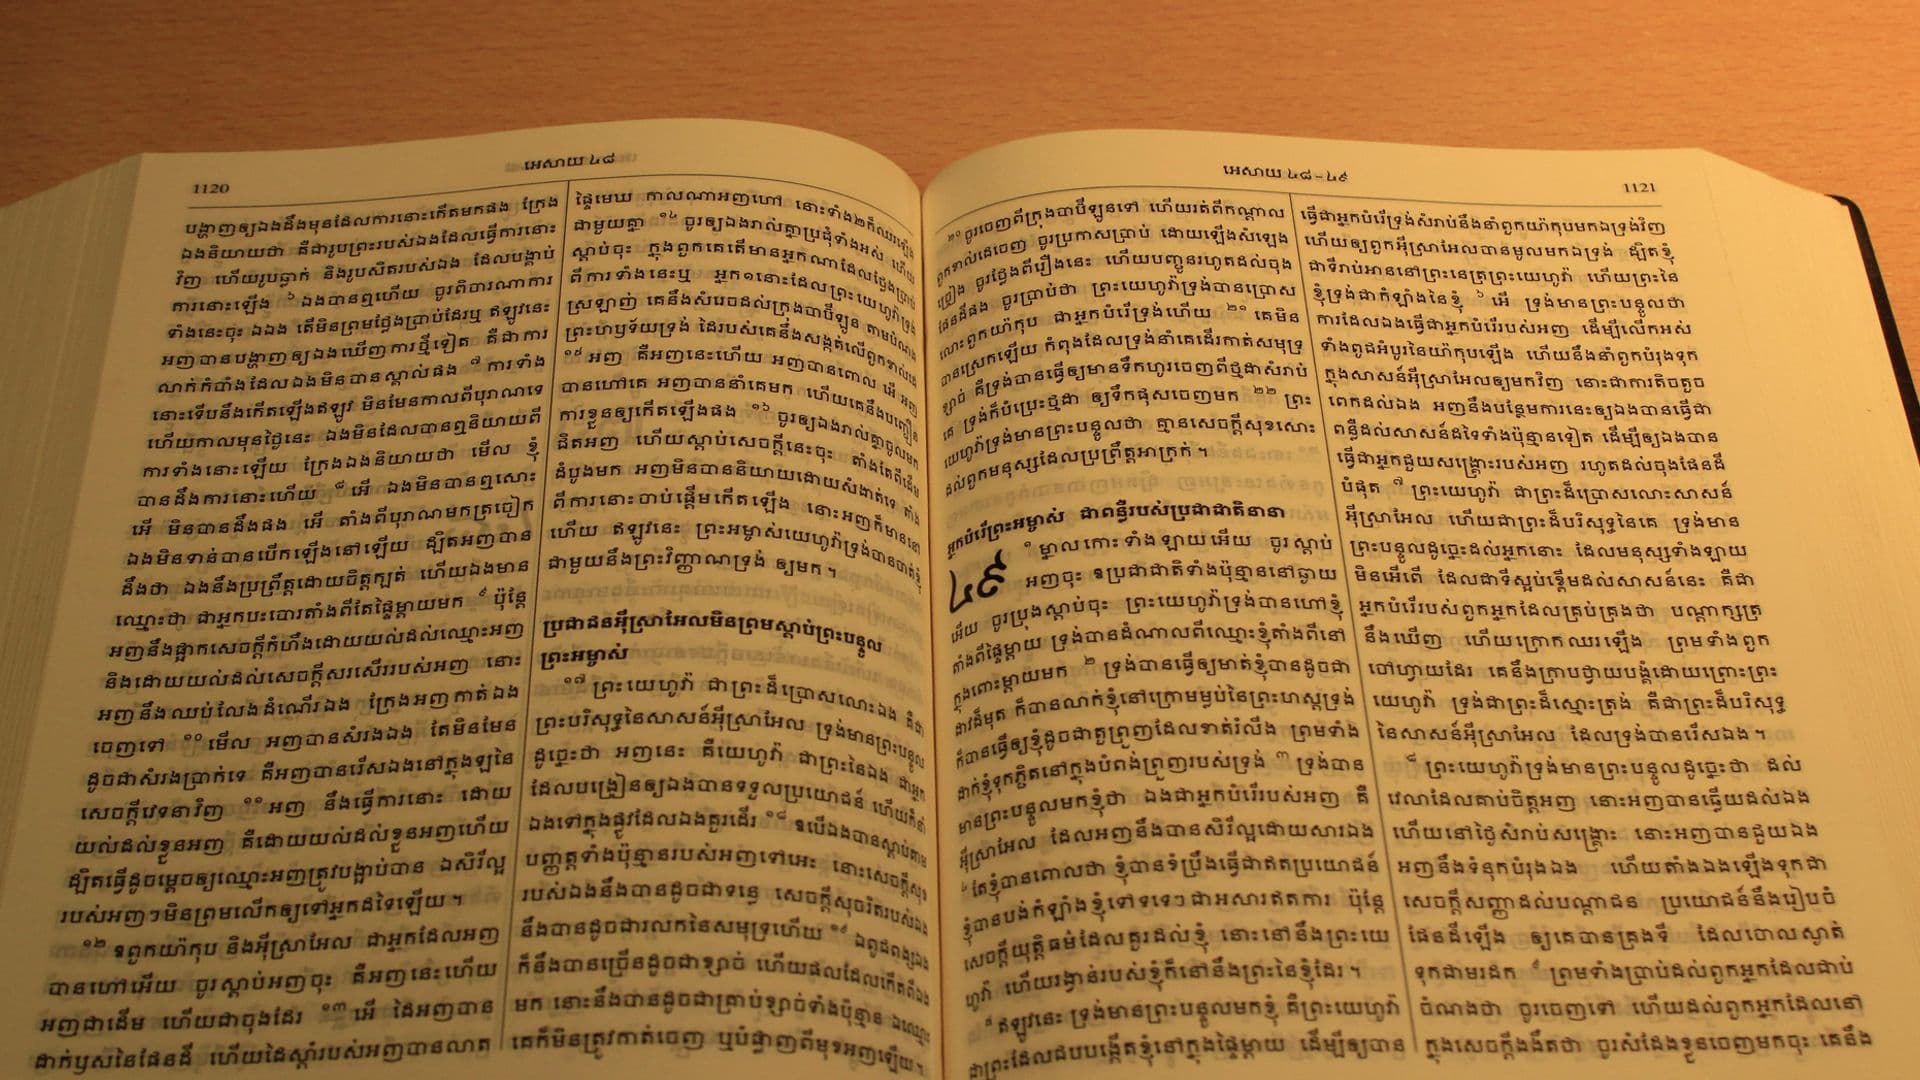 អេសាយ ៤៨
1120
បង្ហាញឲ្យឯងដឹងមុនដែលការនោះកើតមកផង ក្រែង
ឯងនិយាយថា គឺជារូបព្រះរបស់ឯងដែលធ្វើការនោះ
វិញ ហើយរូបឆ្លាក់ និងរូបសិតរបស់ឯង ដែលបង្គាប់
ការនោះឡើង ៦ ឯងបានឮហើយ ចូរពិចារណាការ
ទាំងនេះចុះ ឯឯង តើមិនព្រមថ្លែងប្រាប់ដែរឬ ឥឡូវនេះ
អញបានបង្ហាញឲ្យឯងឃើញការថ្មីទៀត គឺជាការ
លាក់កំបាំងដែលឯងមិនបានស្គាល់ផង ៧ ការទាំង
នោះទើបនឹងកើតឡើងឥឡូវ មិនមែនកាលពីបុរាណទេ
ហើយកាលមុនថ្ងៃនេះ ឯងមិនដែលបានឮនិយាយពី
ការទាំងនោះឡើយ ក្រែងឯងនិយាយថា មើល ខ្ញុំ
បានដឹងការនោះហើយ ៨ អើ ឯងមិនបានឮសោះ
អើ មិនបានដឹងផង អើ តាំងពីបុរាណមកត្រចៀក
ឯងមិនទាន់បានបើកឡើងនៅឡើយ ដ្បិតអញបាន
ដឹងថា ឯងនឹងប្រព្រឹត្តដោយចិត្តក្បត់ ហើយឯងមាន
ឈ្មោះថា ជាអ្នកបះបោរតាំងពីតែផ្ទៃម្តាយមក ៩ ប៉ុន្តែ
អញនឹងផ្អាកសេចក្តីកំហឹងដោយយល់ដល់ឈ្មោះអញ
និងដោយយល់ដល់សេចក្តីសរសើររបស់អញ នោះ
អញនឹងឈប់លែងដំណើរឯង ក្រែងអញកាត់ឯង
ចេញទៅ ១០ មើល អញបានសំរងឯង តែមិនមែន
ដូចជាសំរងប្រាក់ទេ គឺអញបានរើសឯងនៅក្នុងឡនៃ
សេចក្តីវេទនាវិញ ១១ អញ នឹងធ្វើការនោះ ដោយ
យល់ដល់ខ្លួនអញ គឺដោយយល់ដល់ខ្លួនអញហើយ
ដ្បិតធ្វើដូចម្តេចឲ្យឈ្មោះអញត្រូវបង្អាប់បាន ឯសិរីល្អ
របស់អញៗមិនព្រមលើកឲ្យទៅអ្នកដទៃឡើយ។
១២ ឱពួកយ៉ាកុប និងអ៊ីស្រាអែល ជាអ្នកដែលអញ
បានហៅអើយ ចូរស្តាប់អញចុះ គឺអញនេះហើយ
អញជាដើម ហើយជាចុងដែរ ១៣ អើ ដៃអញបាន
ដាក់ឫសនៃផែនដី ហើយដៃស្តាំរបស់អញបានលាត
ផ្ទៃមេឃ កាលណាអញហៅ នោះទាំង២ក៏ឈរឡើង
ជាមួយគ្នា ១៤ ចូរឲ្យឯងរាល់គ្នាប្រជុំទាំងអស់ ហើយ
ស្តាប់ចុះ ក្នុងពួកគេតើមានអ្នកណាដែលថ្លែងប្រាប់
ពីការទាំងនេះឬ អ្នក១នោះដែលព្រះយេហូវ៉ាទ្រង់
ស្រឡាញ់ គេនឹងសំរេចដល់ក្រុងបាប៊ីឡូន តាមបំណង
ព្រះហឫទ័យទ្រង់ ដៃរបស់គេនឹងសង្កត់លើពួកខាល់ដេ
១៥ អញ គឺអញនេះហើយ អញបានពោល អើ អញ
បានហៅគេ អញបាននាំគេមក ហើយគេនឹងបញ្ជឿន
ការខ្លួនឲ្យកើតឡើងផង ១៦ ចូរឲ្យឯងរាល់គ្នាចូលមក
ជិតអញ ហើយស្តាប់សេចក្តីនេះចុះ តាំងតែពីដើម
ដំបូងមក អញមិនបាននិយាយដោយសំងាត់ទេ តាំង
ពីការនោះចាប់ផ្តើមកើតឡើង នោះអញក៏មាននៅ
ហើយ ឥឡូវនេះ ព្រះអម្ចាស់យេហូវ៉ាទ្រង់បានចាត់ខ្ញុំ
ជាមួយនឹងព្រះវិញ្ញាណទ្រង់ ឲ្យមក។
ប្រជាជនអ៊ីស្រាអែលមិនព្រមស្តាប់ព្រះបន្ទូល
ព្រះអម្ចាស់
១៧ ព្រះយេហូវ៉ា ជាព្រះដ៏ប្រោសលោះឯង គឺជា
ព្រះបរិសុទ្ធនៃសាសន៍អ៊ីស្រាអែល ទ្រង់មានព្រះបន្ទូល
ដូច្នេះថា អញនេះ គឺយេហូវ៉ា ជាព្រះនៃឯង ជាអ្នក
ដែលបង្រៀនឲ្យឯងបានទទួលប្រយោជន៍ ហើយក៏នាំ
ឯងទៅក្នុងផ្លូវដែលឯងគួរដើរ ១៨ ឱបើឯងបានស្តាប់តាម
បញ្ញត្តទាំងប៉ុន្មានរបស់អញទៅអេះ នោះសេចក្តីសុខ
របស់ឯងនឹងបានដូចជាទន្លេ សេចក្តីសុចរិតរបស់ឯង
នឹងបានដូចជារលកនៃសមុទ្រហើយ ១៩ ឯពូជពង្សឯង
ក៏នឹងបានច្រើនដូចជាខ្សាច់ ហើយផលដែលកើតពីឯង
មក នោះនឹងបានដូចជាគ្រាប់ខ្សាច់ទាំងប៉ុន្មាន ឯឈ្មោះ
គេក៏មិនត្រូវកាត់ចេញ ឬបំផ្លាញពីមុខអញឡើយ។
អេសាយ ៤៨ - ៤៩
1121
២០ ចូរចេញពីក្រុងបាប៊ីឡូនទៅ ហើយរត់ពីកណ្តាល
ពួកខាល់ដេចេញ ចូរប្រកាសប្រាប់ ដោយឡើងសំឡេង
ច្រៀង ចូរថ្លែងពីរឿងនេះ ហើយបញ្ជូនរហូតដល់ចុង
ផែនដីផង ចូរប្រាប់ថា ព្រះយេហូវ៉ាទ្រង់បានប្រោស
លោះពួកយ៉ាកុប ជាអ្នកបំរើទ្រង់ហើយ ២១ គេមិន
បានស្រេកឡើយ កំពុងដែលទ្រង់នាំគេដើរកាត់សមុទ្រ
ខ្សាច់ គឺទ្រង់បានធ្វើឲ្យមានទឹកហូរចេញពីថ្មដាសំរាប់
គេ ទ្រង់ក៏បំប្រេះថ្មដា ឲ្យទឹកផុសចេញមក ២២ ព្រះ
យេហូវ៉ាទ្រង់មានព្រះបន្ទូលថា គ្មានសេចក្តីសុខសោះ
ដល់ពួកមនុស្សដែលប្រព្រឹត្តអាក្រក់។
អ្នកបំរើព្រះអម្ចាស់ ជាពន្លឺរបស់ប្រជាជាតិនានា
៤៩ ១ ម្នាលកោះទាំងឡាយអើយ ចូរស្តាប់
អញចុះ ឱប្រជាជាតិទាំងប៉ុន្មាននៅឆ្ងាយ
អើយ ចូរប្រុងស្តាប់ចុះ ព្រះយេហូវ៉ាទ្រង់បានហៅខ្ញុំ
តាំងពីផ្ទៃម្តាយ ទ្រង់បានដំណាលពីឈ្មោះខ្ញុំតាំងពីនៅ
ក្នុងពោះម្តាយមក ២ ទ្រង់បានធ្វើឲ្យមាត់ខ្ញុំបានដូចជា
ដាវដ៏មុត ក៏បានលាក់ខ្ញុំនៅក្រោមម្លប់នៃព្រះហស្តទ្រង់
ក៏បានធ្វើឲ្យខ្ញុំដូចជាតួព្រួញដែលខាត់រំលីង ព្រមទាំង
ដាក់ខ្ញុំទុកភ្ជិតនៅក្នុងបំពង់ព្រួញរបស់ទ្រង់ ៣ ទ្រង់បាន
មានព្រះបន្ទូលមកខ្ញុំថា ឯងជាអ្នកបំរើរបស់អញ គឺ
អ៊ីស្រាអែល ដែលអញនឹងបានសិរីល្អដោយសារឯង
៤ តែខ្ញុំបានពោលថា ខ្ញុំបានទំប្រឹងធ្វើជាឥតប្រយោជន៍
ខ្ញុំបានបង់កំឡាំងខ្ញុំទៅទទេៗជាអសារឥតការ ប៉ុន្តែ
សេចក្តីយុត្តិធម៌ដែលគួរដល់ខ្ញុំ នោះនៅនឹងព្រះយេ
ហូវ៉ា ហើយរង្វាន់របស់ខ្ញុំក៏នៅនឹងព្រះនៃខ្ញុំដែរ។
៥ ឥឡូវនេះ ទ្រង់មានព្រះបន្ទូលមកខ្ញុំ គឺព្រះយេហូវ៉ា
ជាព្រះដែលជបបង្កើតខ្ញុំនៅក្នុងផ្ទៃម្តាយ ដើម្បីឲ្យបាន
ធ្វើជាអ្នកបំរើទ្រង់សំរាប់នឹងនាំពួកយ៉ាកុបមកឯទ្រង់វិញ
ហើយឲ្យពួកអ៊ីស្រាអែលបានមូលមកឯទ្រង់ ដ្បិតខ្ញុំ
ជាទីរាប់អាននៅព្រះនេត្រព្រះយេហូវ៉ា ហើយព្រះនៃ
ខ្ញុំទ្រង់ជាកំឡាំងនៃខ្ញុំ ៦ អើ ទ្រង់មានព្រះបន្ទូលថា
ការដែលឯងធ្វើជាអ្នកបំរើរបស់អញ ដើម្បីលើកអស់
ទាំងពូជអំបូរនៃយ៉ាកុបឡើង ហើយនឹងនាំពួកបំរុងទុក
ក្នុងសាសន៍អ៊ីស្រាអែលឲ្យមកវិញ នោះជាការតិចតួច
ពេកដល់ឯង អញនឹងបន្ថែមការនេះឲ្យឯងបានធ្វើជា
ពន្លឺដល់សាសន៍ដទៃទាំងប៉ុន្មានទៀត ដើម្បីឲ្យឯងបាន
ធ្វើជាអ្នកជួយសង្គ្រោះរបស់អញ រហូតដល់ចុងផែនដី
បំផុត ៧ ព្រះយេហូវ៉ា ជាព្រះដ៏ប្រោសលោះសាសន៍
អ៊ីស្រាអែល ហើយជាព្រះដ៏បរិសុទ្ធនៃគេ ទ្រង់មាន
ព្រះបន្ទូលដូច្នេះដល់អ្នកនោះ ដែលមនុស្សទាំងឡាយ
មិនអើពើ ដែលជាទីស្អប់ខ្ពើមដល់សាសន៍នេះ គឺជា
អ្នកបំរើរបស់ពួកអ្នកដែលគ្រប់គ្រងថា បណ្តាក្សត្រ
នឹងឃើញ ហើយក្រោកឈរឡើង ព្រមទាំងពួក
ចៅហ្វាយដែរ គេនឹងក្រាបថ្វាយបង្គំដោយព្រោះព្រះ
យេហូវ៉ា ទ្រង់ជាព្រះដ៏ស្មោះត្រង់ គឺជាព្រះដ៏បរិសុទ្ធ
នៃសាសន៍អ៊ីស្រាអែល ដែលទ្រង់បានរើសឯង។
៨ ព្រះយេហូវ៉ាទ្រង់មានព្រះបន្ទូលដូច្នេះថា ដល់
វេលាដែលគាប់ចិត្តអញ នោះអញបានឆ្លើយដល់ឯង
ហើយនៅថ្ងៃសំរាប់សង្គ្រោះ នោះអញបានជួយឯង
អញនឹងទំនុកបំរុងឯង ហើយតាំងឯងឡើងទុកជា
សេចក្តីសញ្ញាដល់បណ្តាជន ប្រយោជន៍នឹងរៀបចំ
ផែនដីឡើង ឲ្យគេបានគ្រងទី ដែលចោលស្ងាត់
ទុកជាមរដក ៩ ព្រមទាំងប្រាប់ដល់ពួកអ្នកដែលជាប់
ចំណងថា ចូរចេញទៅ ហើយដល់ពួកអ្នកដែលនៅ
ក្នុងសេចក្តីងងឹតថា ចូរសំដែងខ្លួនចេញមកចុះ គេនឹង